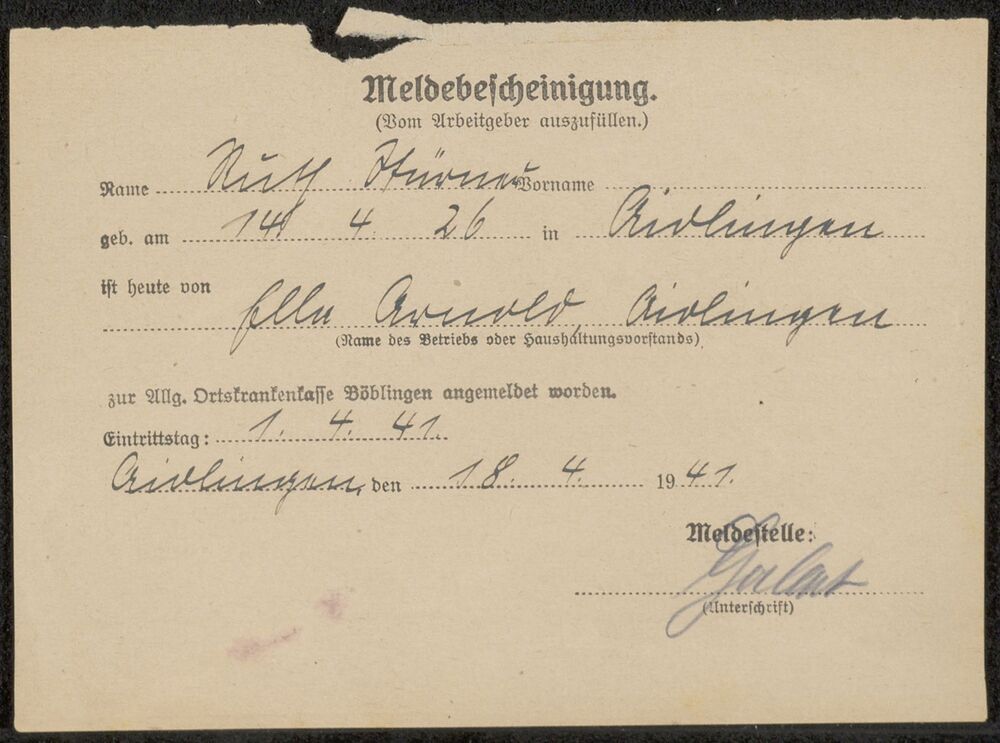 Meldebescheinigung.
(Vom Arbeitgeber auszufüllen.)
Name Ruth Stürner Vorname
geb. am 14 4. 26 in Aidlingen
ist heute von
Ella Arnold, Aidlingen
(Name des Betriebs oder Haushaltungsvorstands)
zur Allg. Ortskrankenkasse Böblingen angemeldet worden.
Eintrittstag: 1. 4. 41.
Aidlingen, den 18. 4. 1941.
Meldestelle:
(Unterschrift)